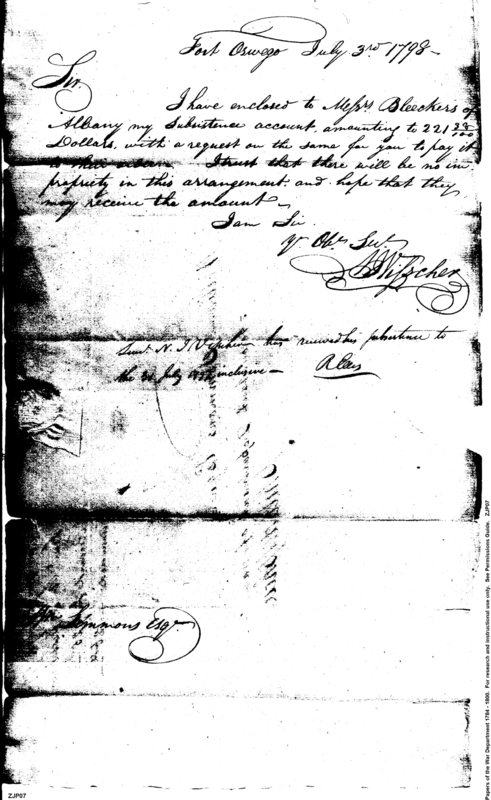 Fort Oswego July 3rd 1798
Sir.
I have enclosed to Messrs Bleeckers of
Albany my Subsistence account, amounting to 221 28/100
Dollars, with a request on the same for you to pay it
I trust that there will be no im
propriety in this arrangement. and hope that they
may receive the amount
I am Sir
Yr Obt Sert
Lieut N. J. Visscher has received his subsistence to
the July inclusive
Wm Simmons Esqr
Papers of the War Department 1784 - 1800. For research and instructional use only. See Permissions Guide. ZJP07
ZJP07